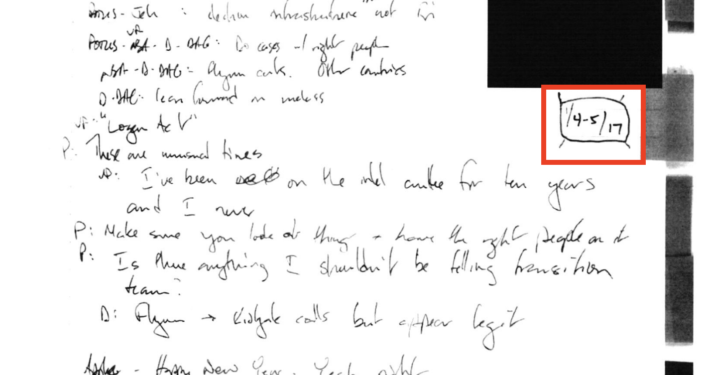 election infrastructure not
VP
POTUS-NSA-D-DAG: Do cases - right people
NSA-D-DAG: Flynn cuts. Other countries
D-DAG: lean forward on unclass
VP: "Logan Act"
P: These are unusual times
VP: I've been on the intel cmttee for ten years
and I never
P: Make sure you look at things + have the right people on it
P: Is there anything I shouldn't be telling transition
team?
D: Flynn → Kislyak calls but appear legit
Happy New Year. Yeah right
1/4-5/17